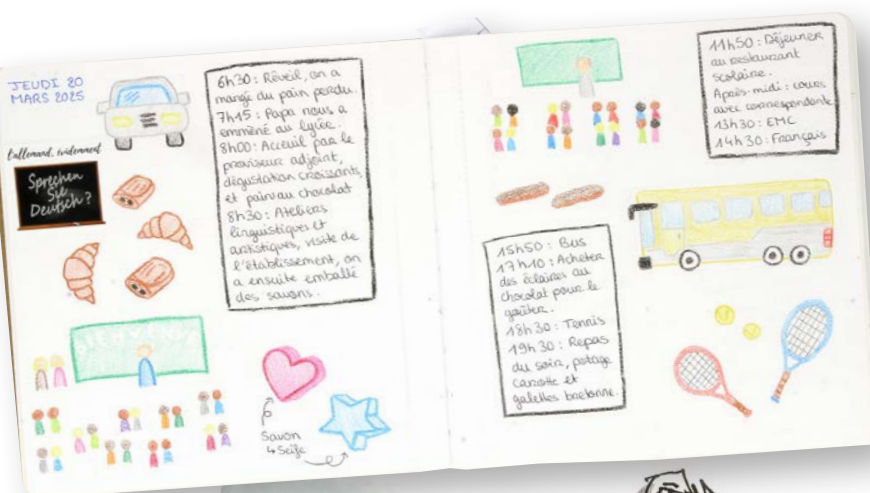 JEUDI 20
MARS 2025
L'allemand, évidemment
Sprechen
Sie
Deutsch ?
6h30 : Réveil, on a
mangé du pain perdu.
7h15 : Papa nous a
emmené au lycée.
8h00 : Acceuil par le
proviseur adjoint,
dégustation croissants,
et pain au chocolat
8h30 : Ateliers
linguistiques et
artistiques, visite de
l'établissement, on
a ensuite emballé
des savons.
BIENVENUE
Savon
↳ Seife
11h50 : Déjeuner
au restaurant
scolaire.
Après-midi : cours
avec correspondante
13h30 : EMC
14h30 : Français
15h50 : Bus
17h10 : Acheter
des éclairs au
chocolat pour le
goûter.
18h30 : Tennis
19h30 : Repas
du soir, potage
carotte et
galettes bretonne.